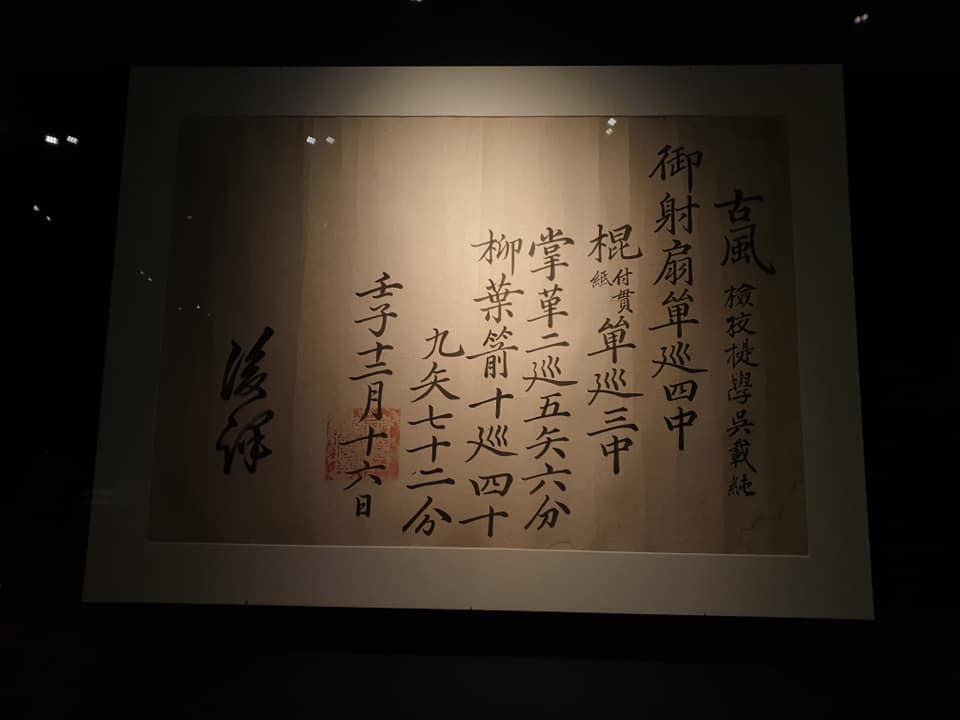 古風 檢校提學吳載純
御射扇單巡四中
棍付貫紙單巡三中
掌革二巡五矢六分
柳葉箭十巡四十
九矢七十二分
壬子十二月十六日